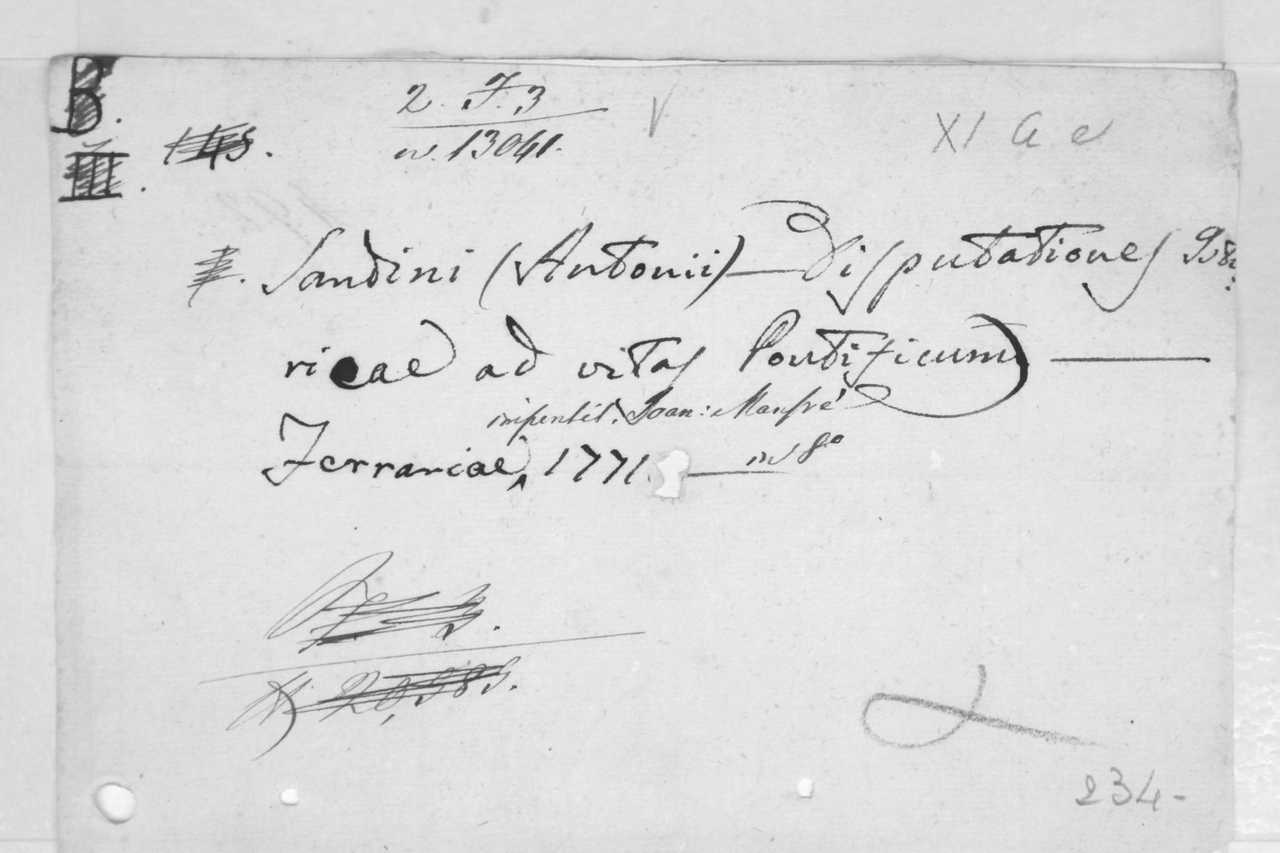 B.
III.
2. F. 3
n. 13041.
XI G e
Sandini (Antonii) — Disputationes
ricae ad vitas Pontificum —
impensis Joan: Manfrè
Ferrariae, 1771. — in 8°
234-